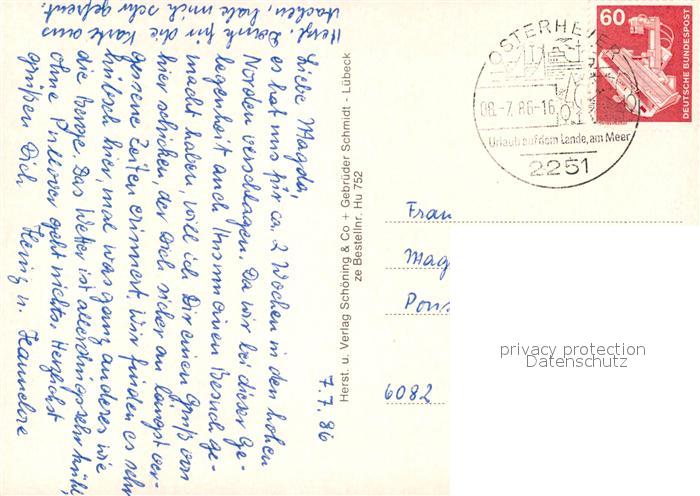 7.7.86
Liebe Magda,
es hat uns für ca. 2 Wochen in den hohen
Norden verschlagen. Da wir bei dieser Ge-
legenheit auch Husum einen Besuch ge-
macht haben, will ich Dir einen Gruß von
hier schicken, der Dich sicher an längst ver-
gangene Zeiten erinnert. Wir finden es sehr
hübsch hier, mal was ganz anderes wie
die Berge. Das Wetter ist allerdings sehr kühl,
ohne Pullover geht nichts. Herzlichst
grüßen Dich Heinz u. Hannelore
Herzl. Dank für die Karte aus
Aachen, habe mich sehr gefreut.
Herst. u. Verlag Schöning & Co + Gebrüder Schmidt - Lübeck
ze Bestellnr. Hu 752
60
DEUTSCHE BUNDESPOST
OSTERHEVER
08.-7.86-16
Urlaub auf dem Lande, am Meer
2251
Frau
Mag
Pons
6082
privacy protection
Datenschutz